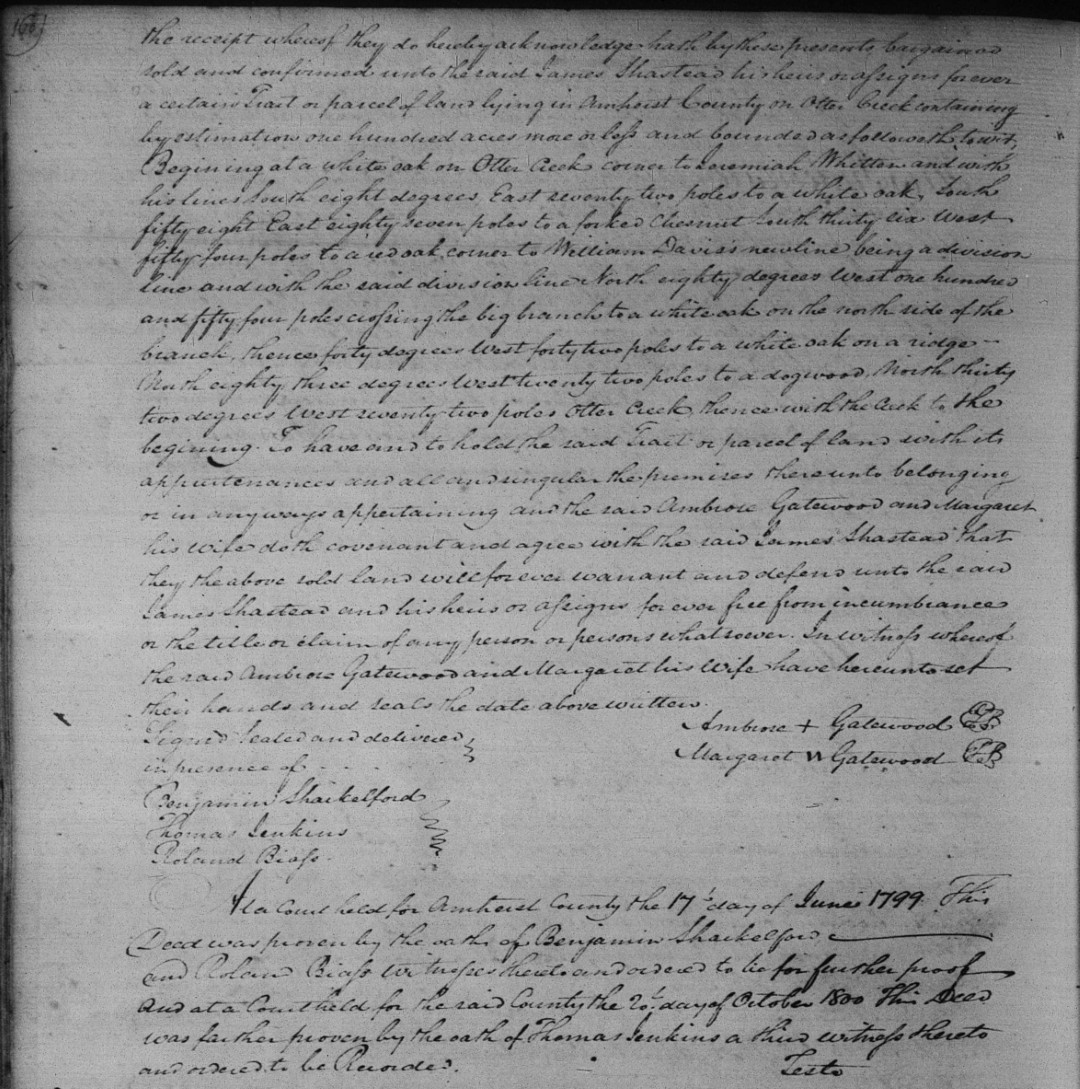 the receipt whereof they do hereby acknowledge hath by these presents bargained
sold and confirmed unto the said James Shastead his heirs or assigns forever
a certain Tract or parcel of land lying in Amherst County on Otter Creek containing
by estimation one hundred acres more or less and bounded as followeth towit,
Begining at a white oak on Otter Creek corner to Jeremiah Whitten and with
his lines South eight degrees East seventy two poles to a white oak, South
fifty eight East eighty seven poles to a forked Chesnut South thirty six West
fifty four poles to a red oak corner to William Davis's new line being a division
line and with the said division line North eighty degrees West one hundred
and fifty four poles crossing the big branch to a white oak on the north side of the
branch, thence forty degrees West forty two poles to a white oak on a ridge -
North eighty three degrees West twenty two poles to a dogwood, North thirty
two degrees West seventy two poles Otter Creek thence with the Creek to the
begining. To have and to hold the said Tract or parcel of land with its
appurtenances and all and singular the premises there unto belonging
or in anyways appertaining and the said Ambrose Gatewood and Margaret
his Wife doth covenant and agree with the said James Shastead that
they the above sold land will forever warrant and defend unto the said
James Shastead and his heirs or assigns forever free from incumbrance
or the title or claim of any person or persons whatsoever. In witness whereof
the said Ambrose Gatewood and Margaret his Wife have hereunto set
their hands and seals the date above written.
Signd Sealed and delivered Ambrose + Gatewood
in presence of - - - Margaret W Gatewood
Benjamin Shackelford
Thomas Jenkins
Roland Biass
At a Court held for Amherst County the 17th day of June 1799. This
Deed was proven by the oaths of Benjamin Shackelford
and Rolan Biass witnesses thereto and ordered to lie for further proof
And at a Court held for the said County the 20th day of October 1800 This Deed
was farther proven by the oath of Thomas Jenkins a third witness thereto
and ordered to be Recorded.
Teste